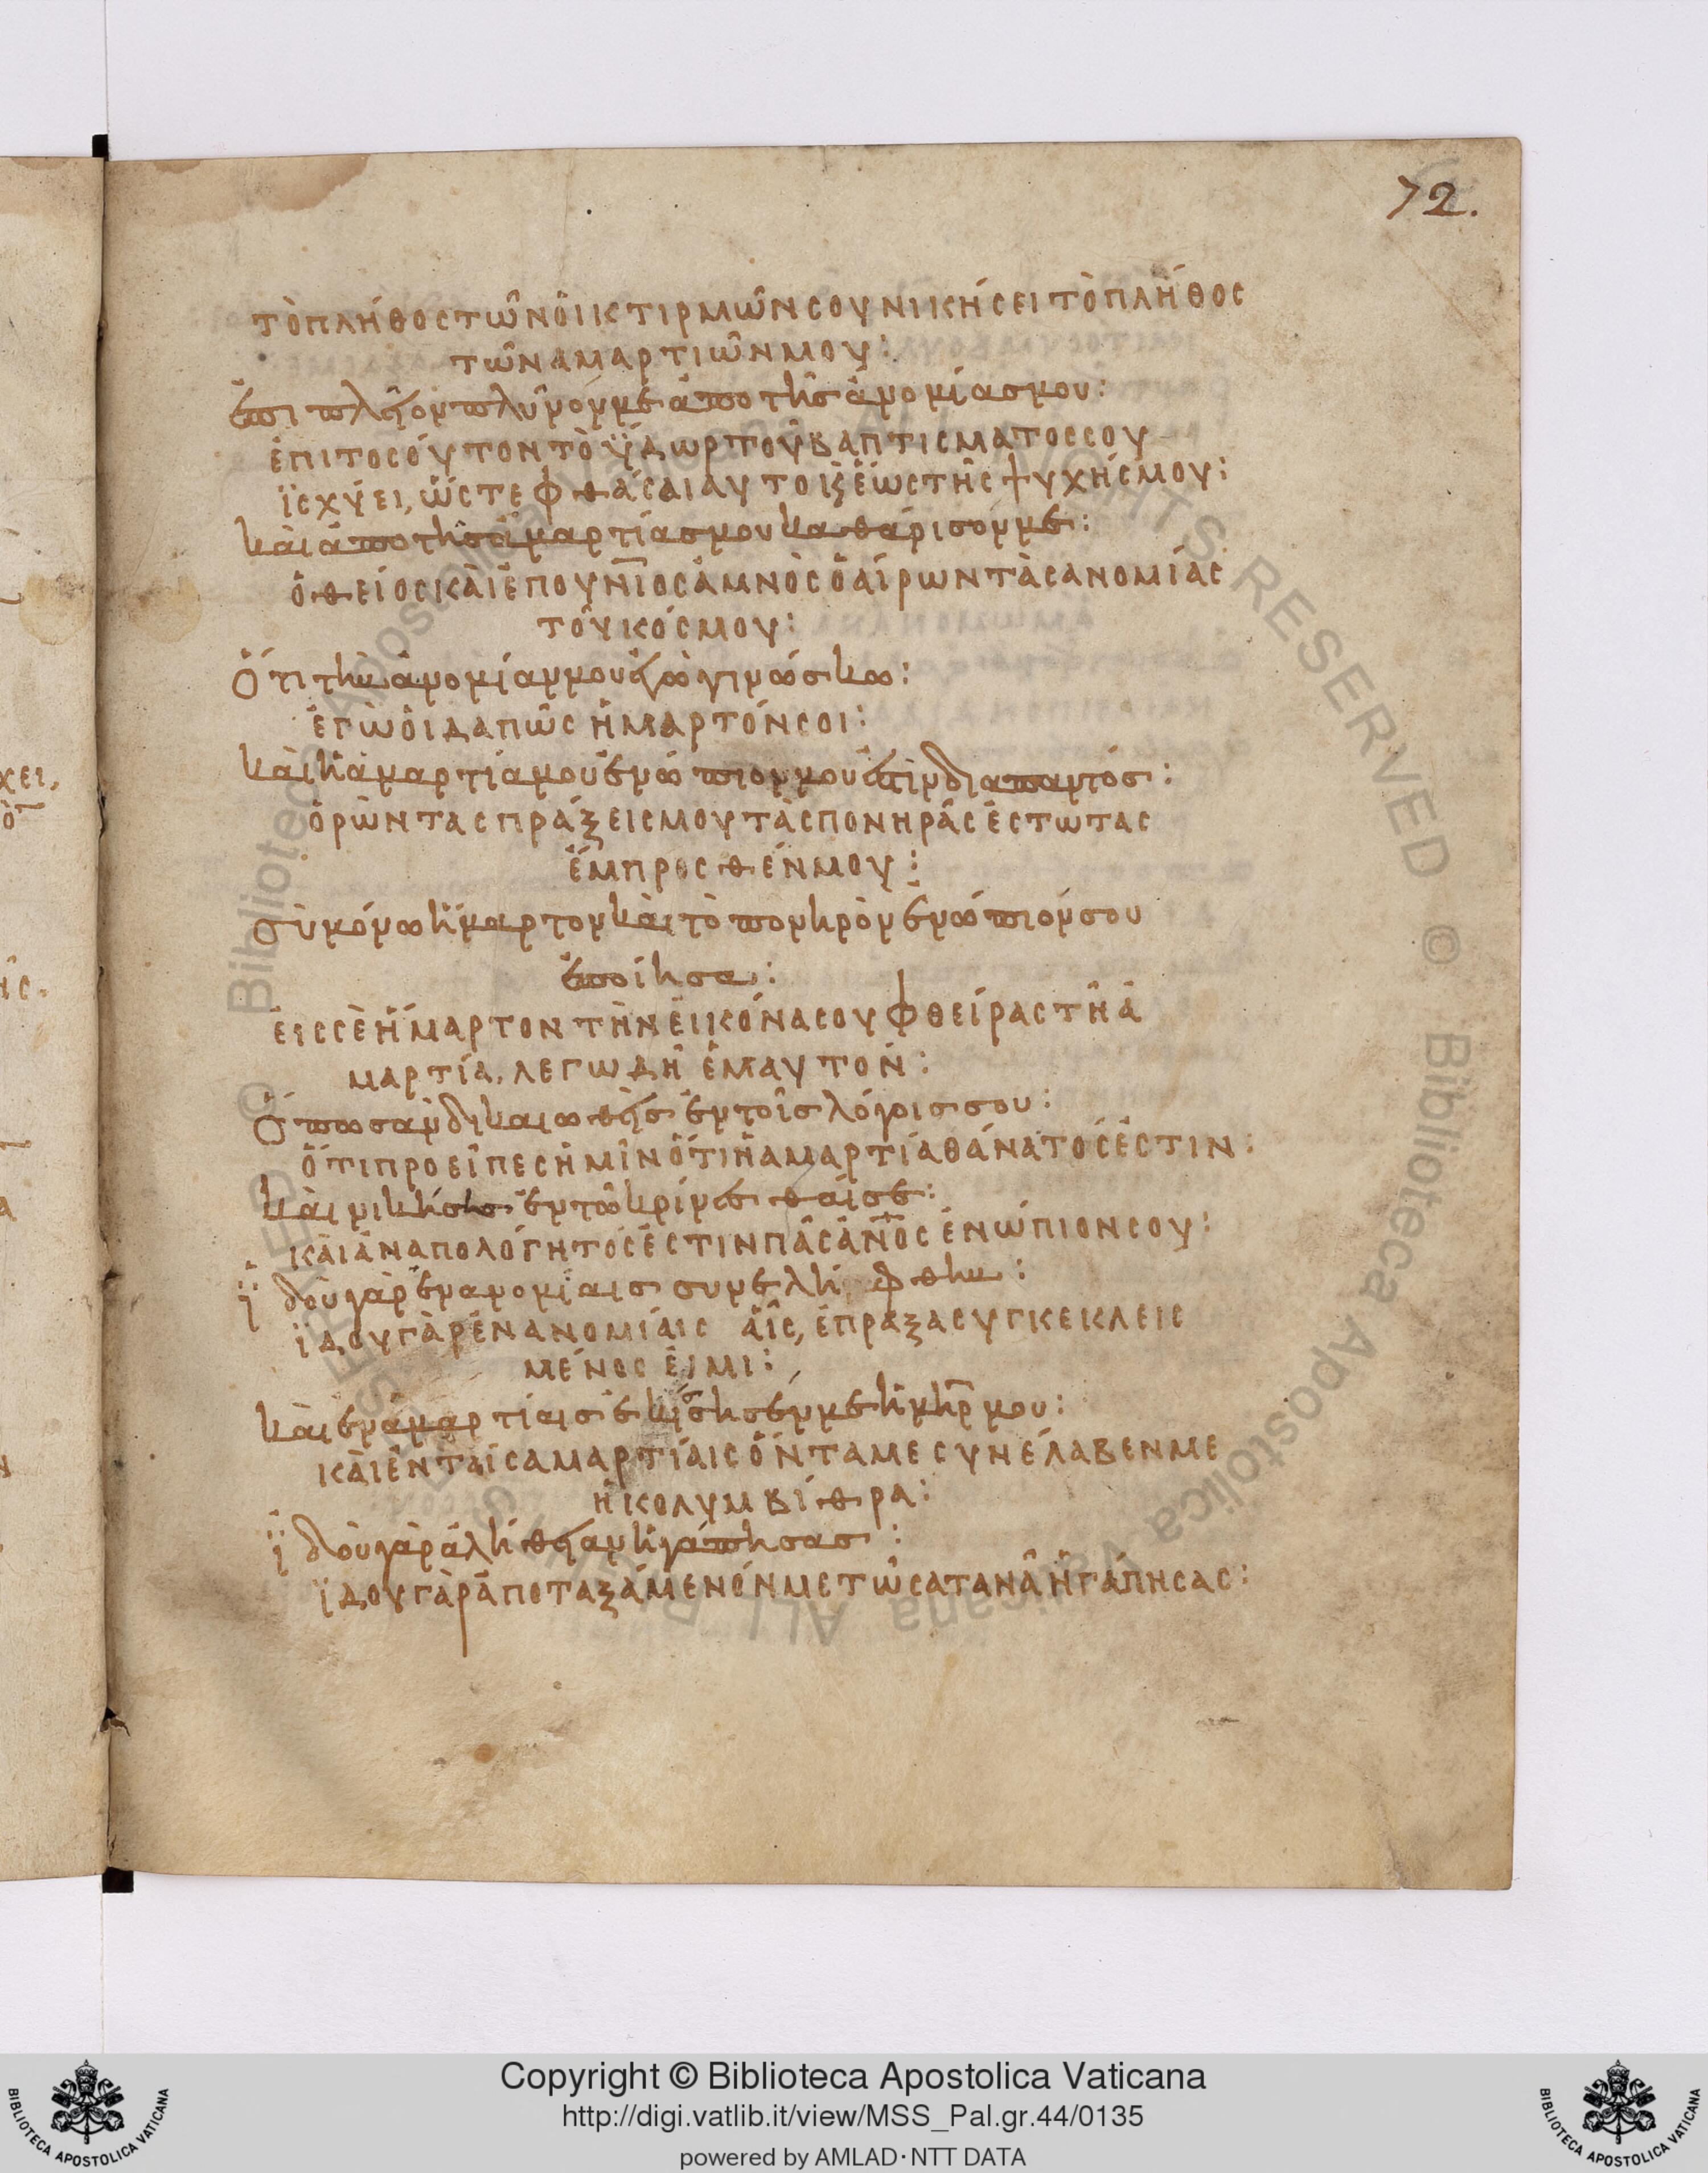 72.
τὸ πλήθος τῶν ὀικτιρμῶν σου νικήσει τὸ πλήθος
τῶν αμαρτιῶν μου:
ἐπι πλεῖον πλῦνόν με ἀπο τῆς ἀνομίας μου:
ἐπι τοσόυτον τὸ ὕδωρ τοῦ βαπτισματος σου
ϊσχύει, ὥστε φθάσαι αυτο ἕως τῆς ψυχής μου:
κὰι ἀπο τῆς ἁμαρτίας μου καθάρισον με:
ὁ θείος κὰι ἐπουνῖος ἀμνὸς ὁ αίρων τὰς ανομίας
τοῦ κόσμου:
Ὅτι τὴν ἀνομίαν μου ἐγὼ γινώσκω:
ἐγὼ ὀιδα πῶς ἡμαρτόν σοι:
κὰι ἡ ἁμαρτία μου ἐνώπιον μου ἐστὶν διαπαντός:
ὁρώντας πράξεις μου τὰς πονηρᾶς ἑστωτας
ἔμπροσθέν μου:
σὺ μόνω ἥμαρτον κὰι τὸ πονηρὸν ἐνώπιόν σου
ἐποίησα:
ἐις σὲ ἥμαρτον τὴν ἐικόνα σου φθείρας τῆ ἁ
μαρτία, λεγω δὴ ἐμαυτον:
Ὅπως ὰν δικαιωθῆς ἐν τοῖς λόγοις σου:
ὅτι προεῖπες ἡμῖν ὅτι ἡ αμαρτία θάνατός ἐστιν:
κὰι νικήσης ἐν τῶ κρίνεσθαί σε:
κὰι ἀναπολόγητός ἐστιν πᾶς ἀνος ἐνώπιον σου:
ϊδὸυ γὰρ ἐν ανομίαις συνελήφθην:
ϊδου γὰρ ἐν ανομίαις αἷς, ἐπραξα συγκεκλεισ
μένος ἐιμι:
κὰι ἐν ἁμαρτίαις ἐκίσσησεν με ἡ μηρ μου:
κὰι ἐν ταίς αμαρτίαις ὄντα με συνέλαβεν με
ἡ κολυμβίθρα:
ϊδὸυ γὰρ ἀλήθειαν ἠγάπησας:
ϊδου γὰρ ἀποταξάμενόν με τῶ σατανᾶ ἠγάπησας:
Copyright © Biblioteca Apostolica Vaticana
http://digi.vatlib.it/view/MSS_Pal.gr.44/0135
powered by AMLAD·NTT DATA